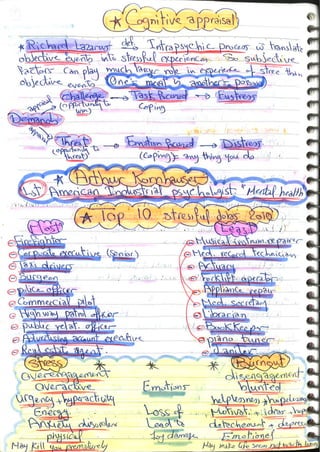 ★ Cognitive appraisal
★ Richard Lazarus def → Intrapsychic process → translate
objective events into stressful experiences. So subjective
factors can play much larger role in experience of stress than
objective events
One's meat is another's poison
appraisal
Challenge → Task focused → Eustress
(opportunity to
coping
Demands
appraisal
Threat → Emotion focused → Distress
(opportunity to
threat)
(coping): any thing you do
★ Arthur Kornhauser
1st American Industrial psychologist "Mental health"
★ Top 10 stressful jobs 2010
Most
Least
Firefighter
Musical instrum. repairer
Corporate executive (senior)
Med. record technician
Taxi drivers
Actuary
Surgeon
Forklift operator
police officer
Appliance repair
Commercial pilot
Med. secretary
Highway patrol officer
Librarian
public relat. officer
Bookkeeper
Advertising account executive
piano tuner
Real estate agent
Janitor
Stress
Burnout
overengagement
disengagement
Overactive
Emotions
blunted
Urgency + hyperactivity
helplessness + hopelessness
Energy
Loss of
Motivat. + ideas + hope
Anxiety disorders
Lead to
detachment + depress
physical
by damage
Emotional
May kill you prematurely
May make life seem not worth living